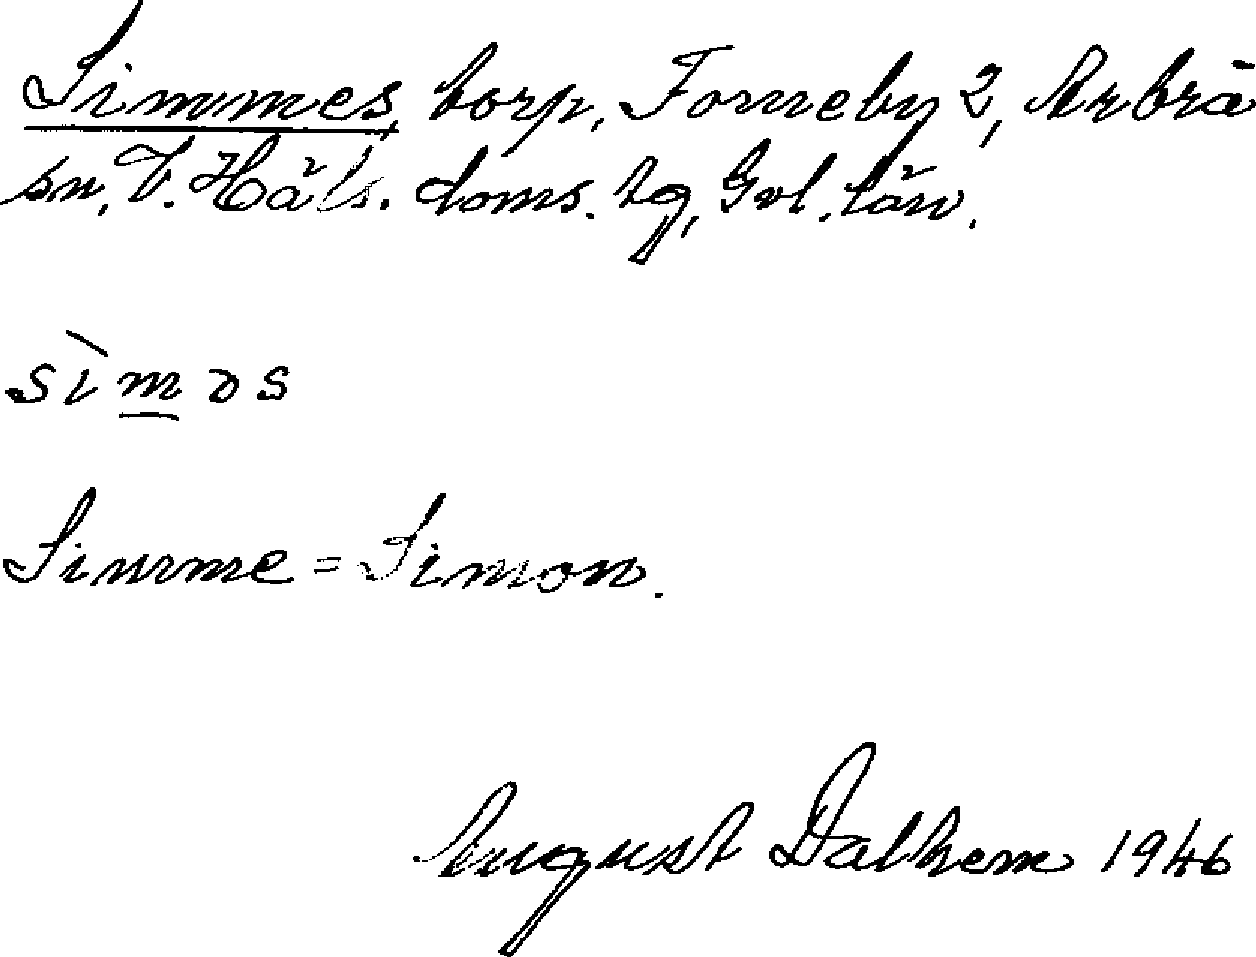 Simmes, torp, Forneby 2, Arbrå
sn, V. Häls. doms. hg, Gvl. län.
sìmɔs
Simme = Simon.
August Dalhem 1946